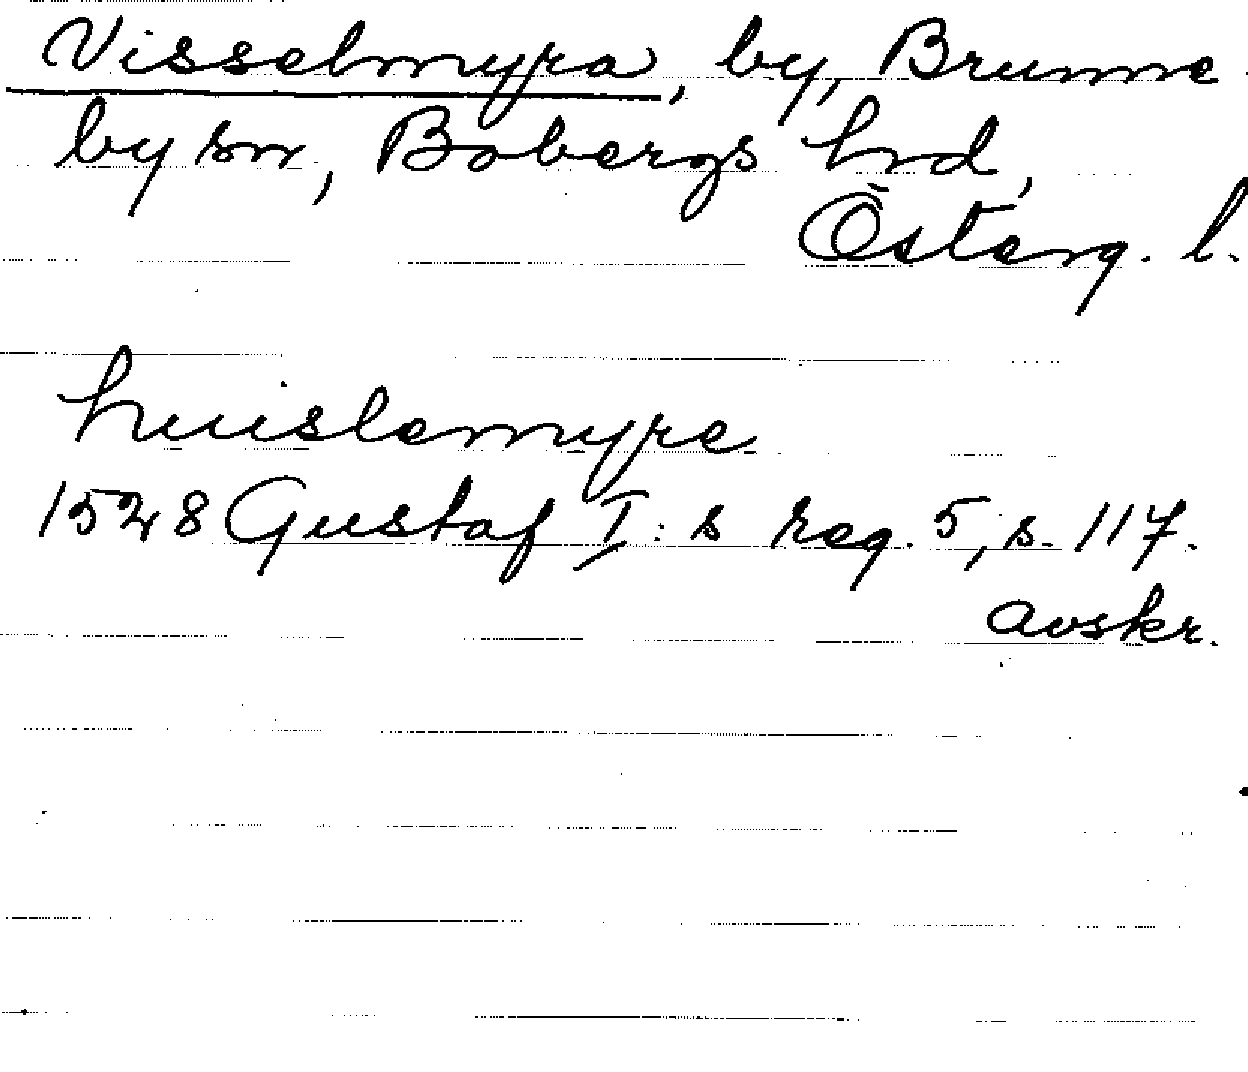 Visselmyra, by, Brunne-
by sn, Bobergs hrd,
Österg. l.
huislemyre
1528 Gustaf I:s reg. 5, s. 117.
avskr.